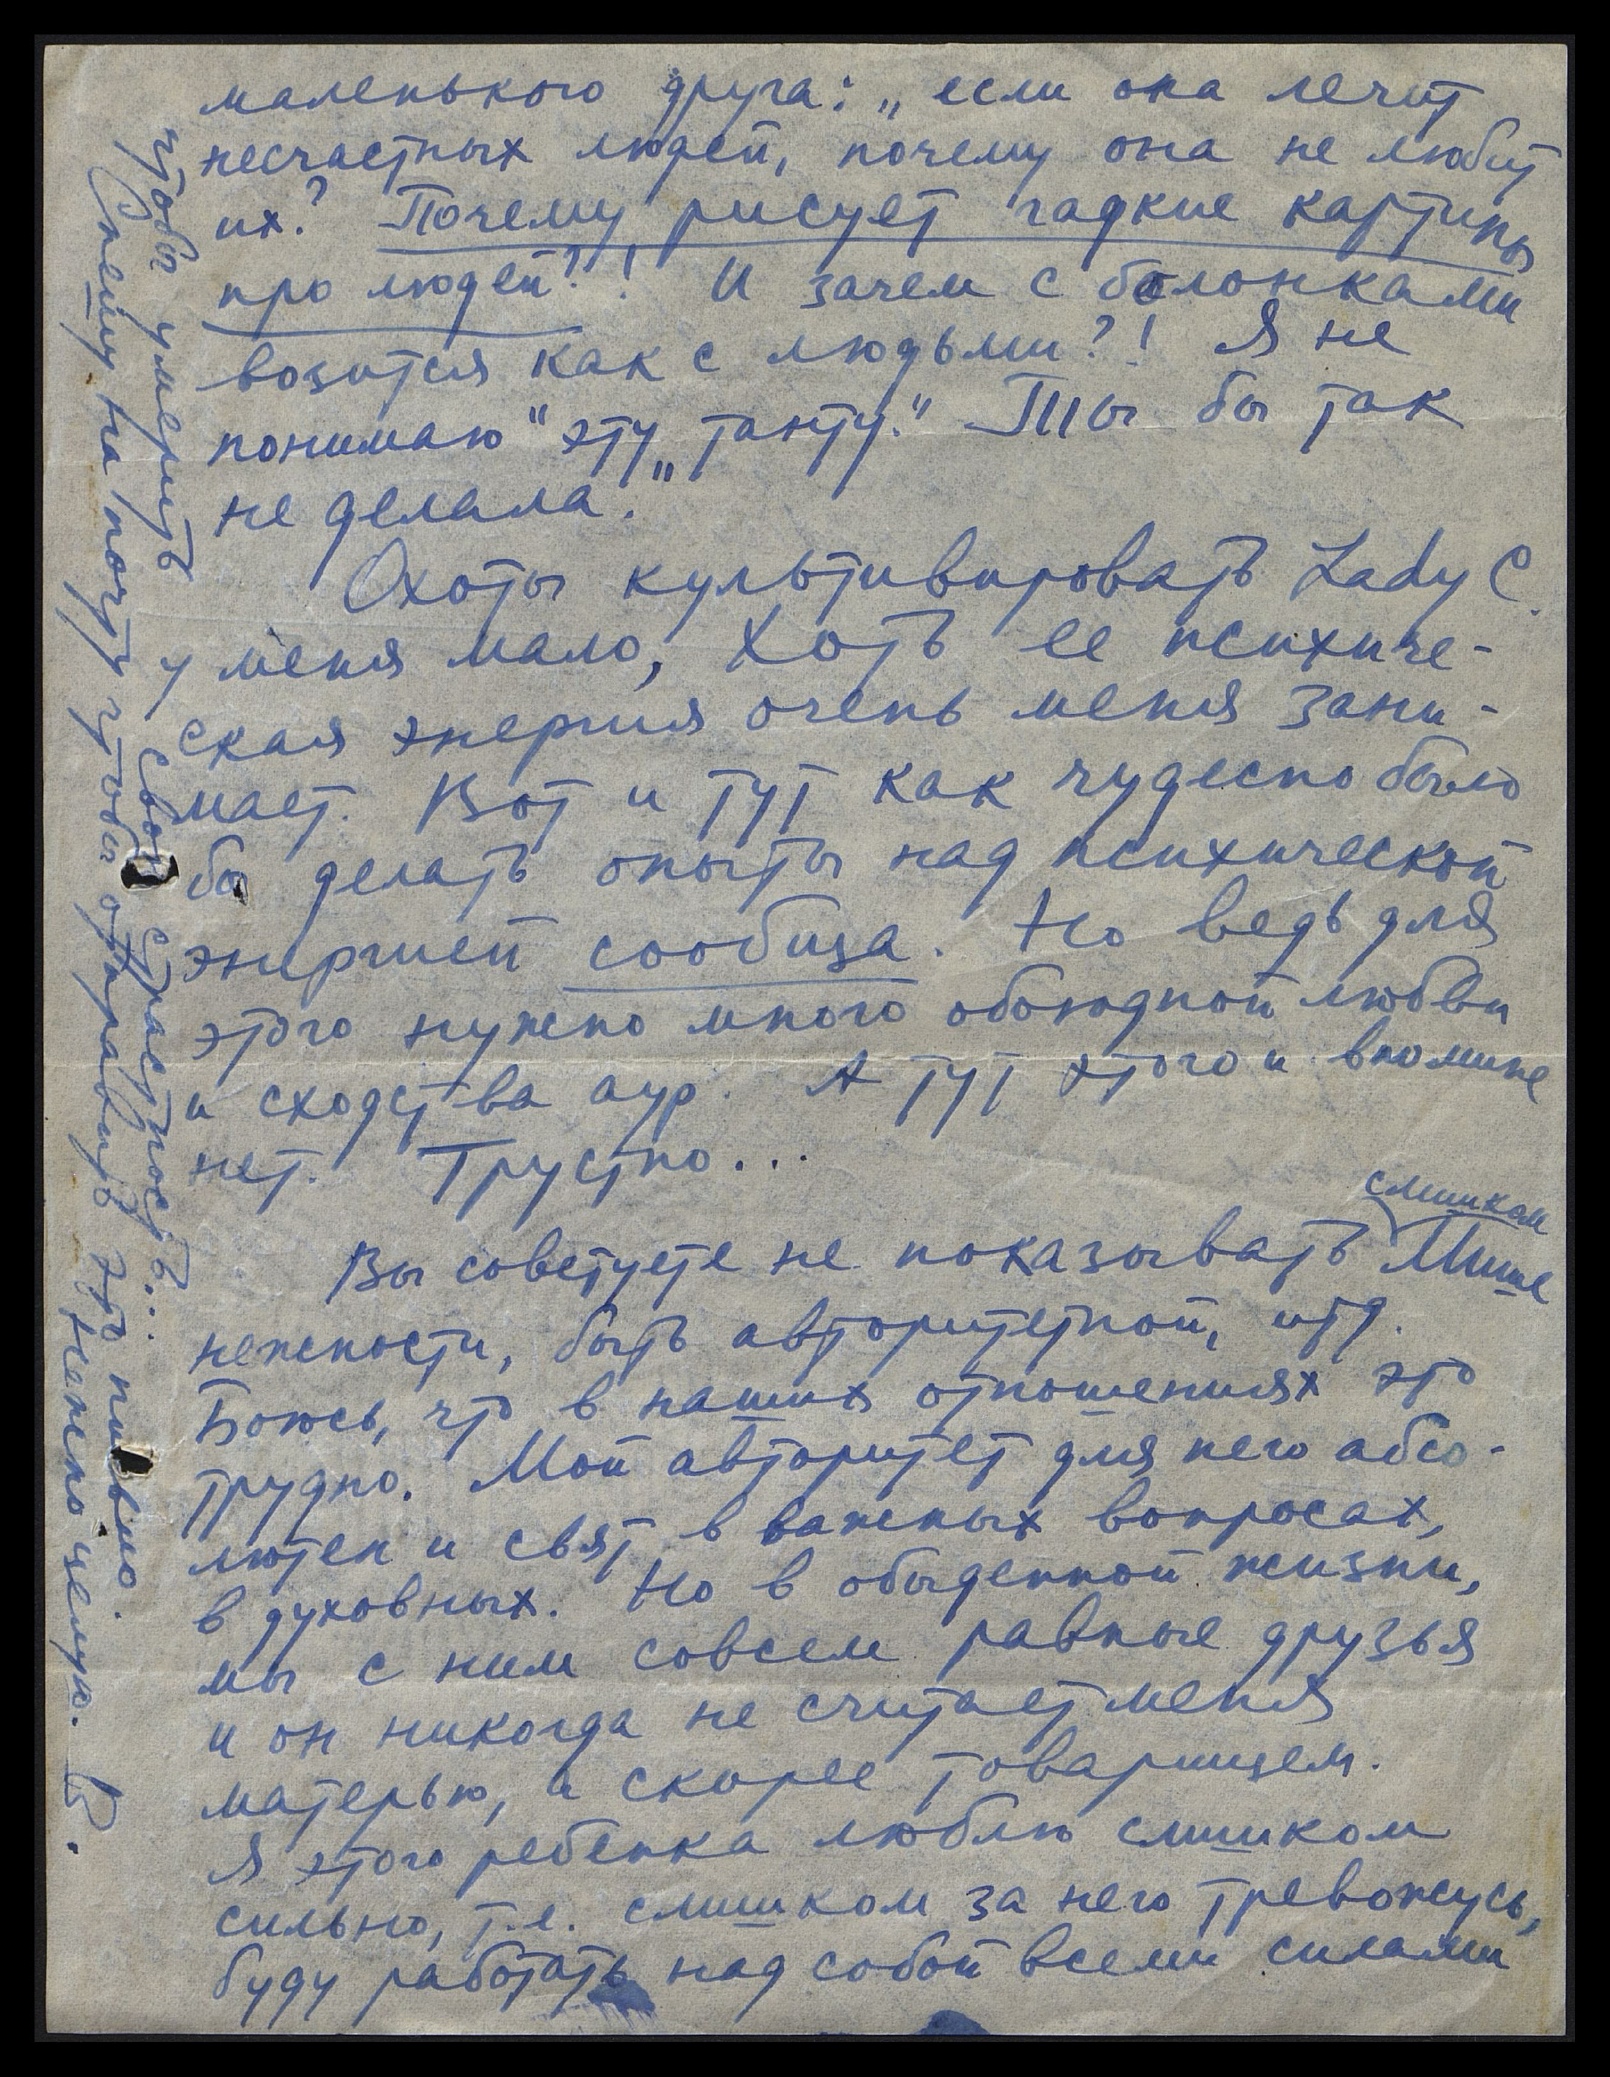 маленького друга: „если она лечит
несчастных людей, почему она не любит
их? Почему рисует гадкие картины
про людей?! И зачем с болонками
возится как с людьми?! Я не
понимаю "эту „танту". Ты бы так
не делала."
Охоты культивировать Lady C.
у меня мало, хоть ее психиче-
ская энергия очень меня зани-
мает. Вот и тут как чудесно было
бы делать опыты над психической
энергией сообща. Но ведь для
этого нужно много обоюдной любви
и сходства аур. А тут этого и впомине
нет. Грустно...
Вы советуете не показывать Мише
слишком
нежности, быть авторитетной, итд.
Боюсь, что в наших отношениях это
трудно. Мой авторитет для него абсо-
лютен и свят в важных вопросах,
в духовных. Но в обыденной жизни,
мы с ним совсем равные друзья
и он никогда не считает меня
матерью, а скорее товарищем.
Я этого ребенка люблю слишком
сильно, т.е. слишком за него тревожусь,
буду работать над собой всеми силами
чтобы умерить свою страстность...
Спешу на почту чтобы отправить это письмо.
Нежно целую. В.